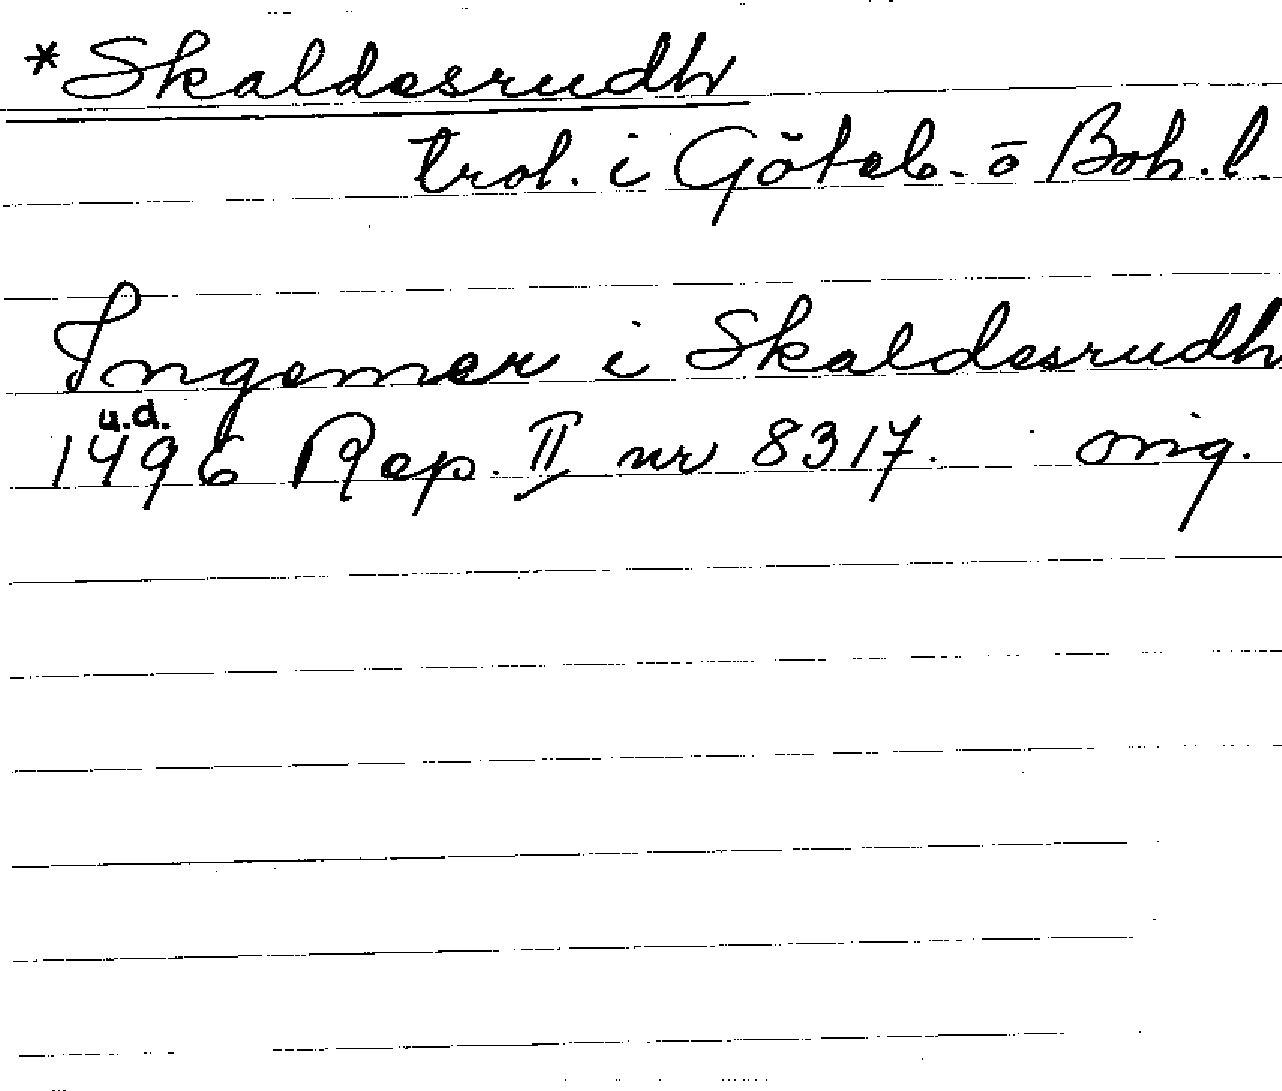 *Skaldesrudh
trol. i Göteb. o Boh. l.
Ingemer i Skaldesrudh
u.d.
1496 Rep. II nr 8317. orig.